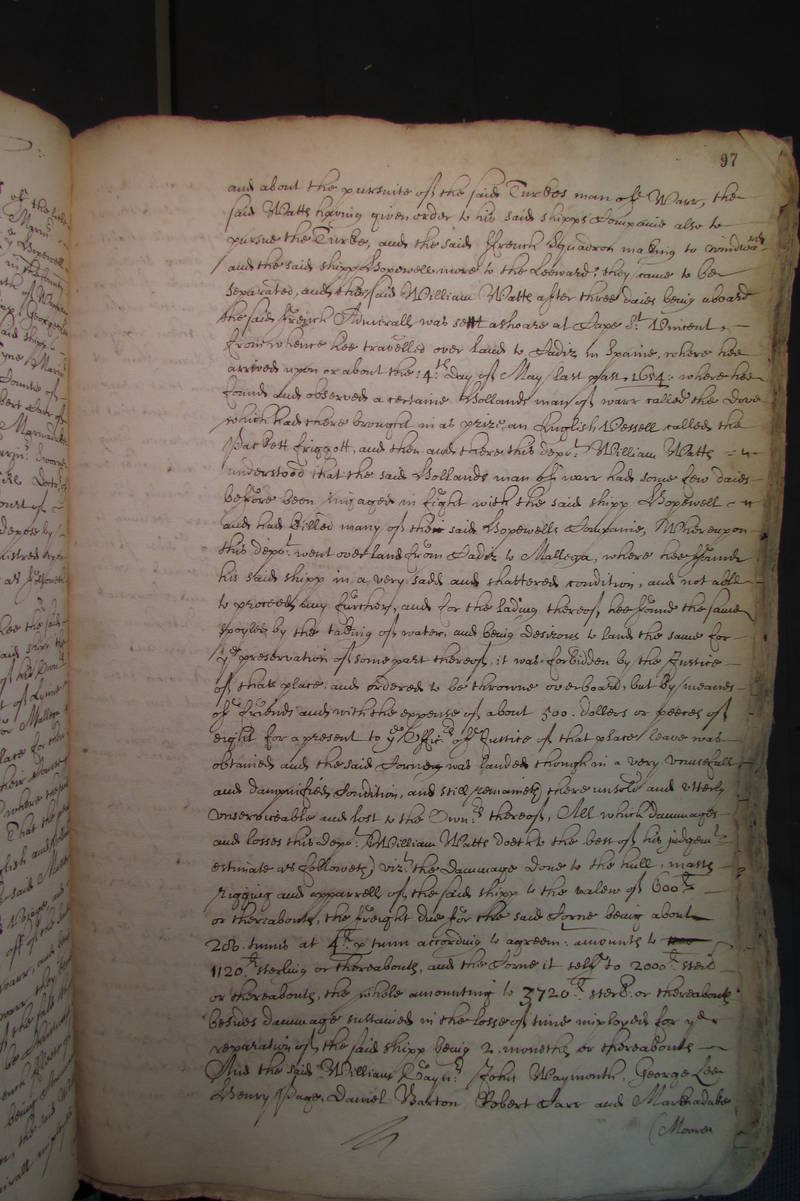 97
and about the pursuite of the said Turkes man of Warr, the
said Watts having given order to his said shipps Companie also to
pursue the Turke, and the said ffrench Squadron making to windward
and the said shipp Hopewell more to the Leeward: they came to be
separated, and the said William Watts after three daies being aboard
the said ffrench Admirall was sett ashoare at Cape St. Vincent,
from whence hee travelled over land to Cadiz in Spaine, where hee
arrived upon or about the 4th. Day of May last past 1654: where hee
found and observed a certaine Hollands man of warr called the Dove
which had there brought in as prize an English Vessell called the
Packett friggott, and then and there this depot. William Watts
understood that the said Hollands man of warr had some few daies
before been ingaged in fight with the said shipp Hopewell
and had killed many of the said Hopewells Companie, Whereupon
this depot. went over land from Cadiz to Mallega, where hee found
his said shipp in a very sadd and shattered condition, and not able
to proceed any further, and for the lading thereof, hee found the same
spoyled by the taking of water, and being desirous to land the same for
ye preservation of some part thereof, it was forbidden by the Justice
of that place and ordered to be throwne overboard, but by meanes
of friends and with the expense of about 500. dollers or peeces of
eight for a present to ye Officrs of Justice of that place leave was
obtained and the said Corne was landed though in a very unusefull
and dampnified Condition, and still remaineth there unsold and utterly
unserviceable and lost to the Ownrs thereof, All which dammages
and losses this depot. William Watts doeth to the best of his judgemt.
estimate as followeth) vizt. the dammage done to the hull, masts
rigging and apparrell of the said shipp to the valew of 600li
or thereabouts, the freight due for the said Corne being about
280. tunns at 4li p tunn according to agreemt. amounts to
1120li sterling or thereabouts, and the Corne it selfe to 2000li sterl
or thereabouts, the whole amounting to 3720li sterl. or thereabouts
besides dammage sustained in the losse of time imployed for ye
reparation of the said shipp being 2. moneths or thereabouts
And the said William John Waymouth, George Lee
Henry Page, Daniel Barton Robert Carr and Marmaduke
Moone